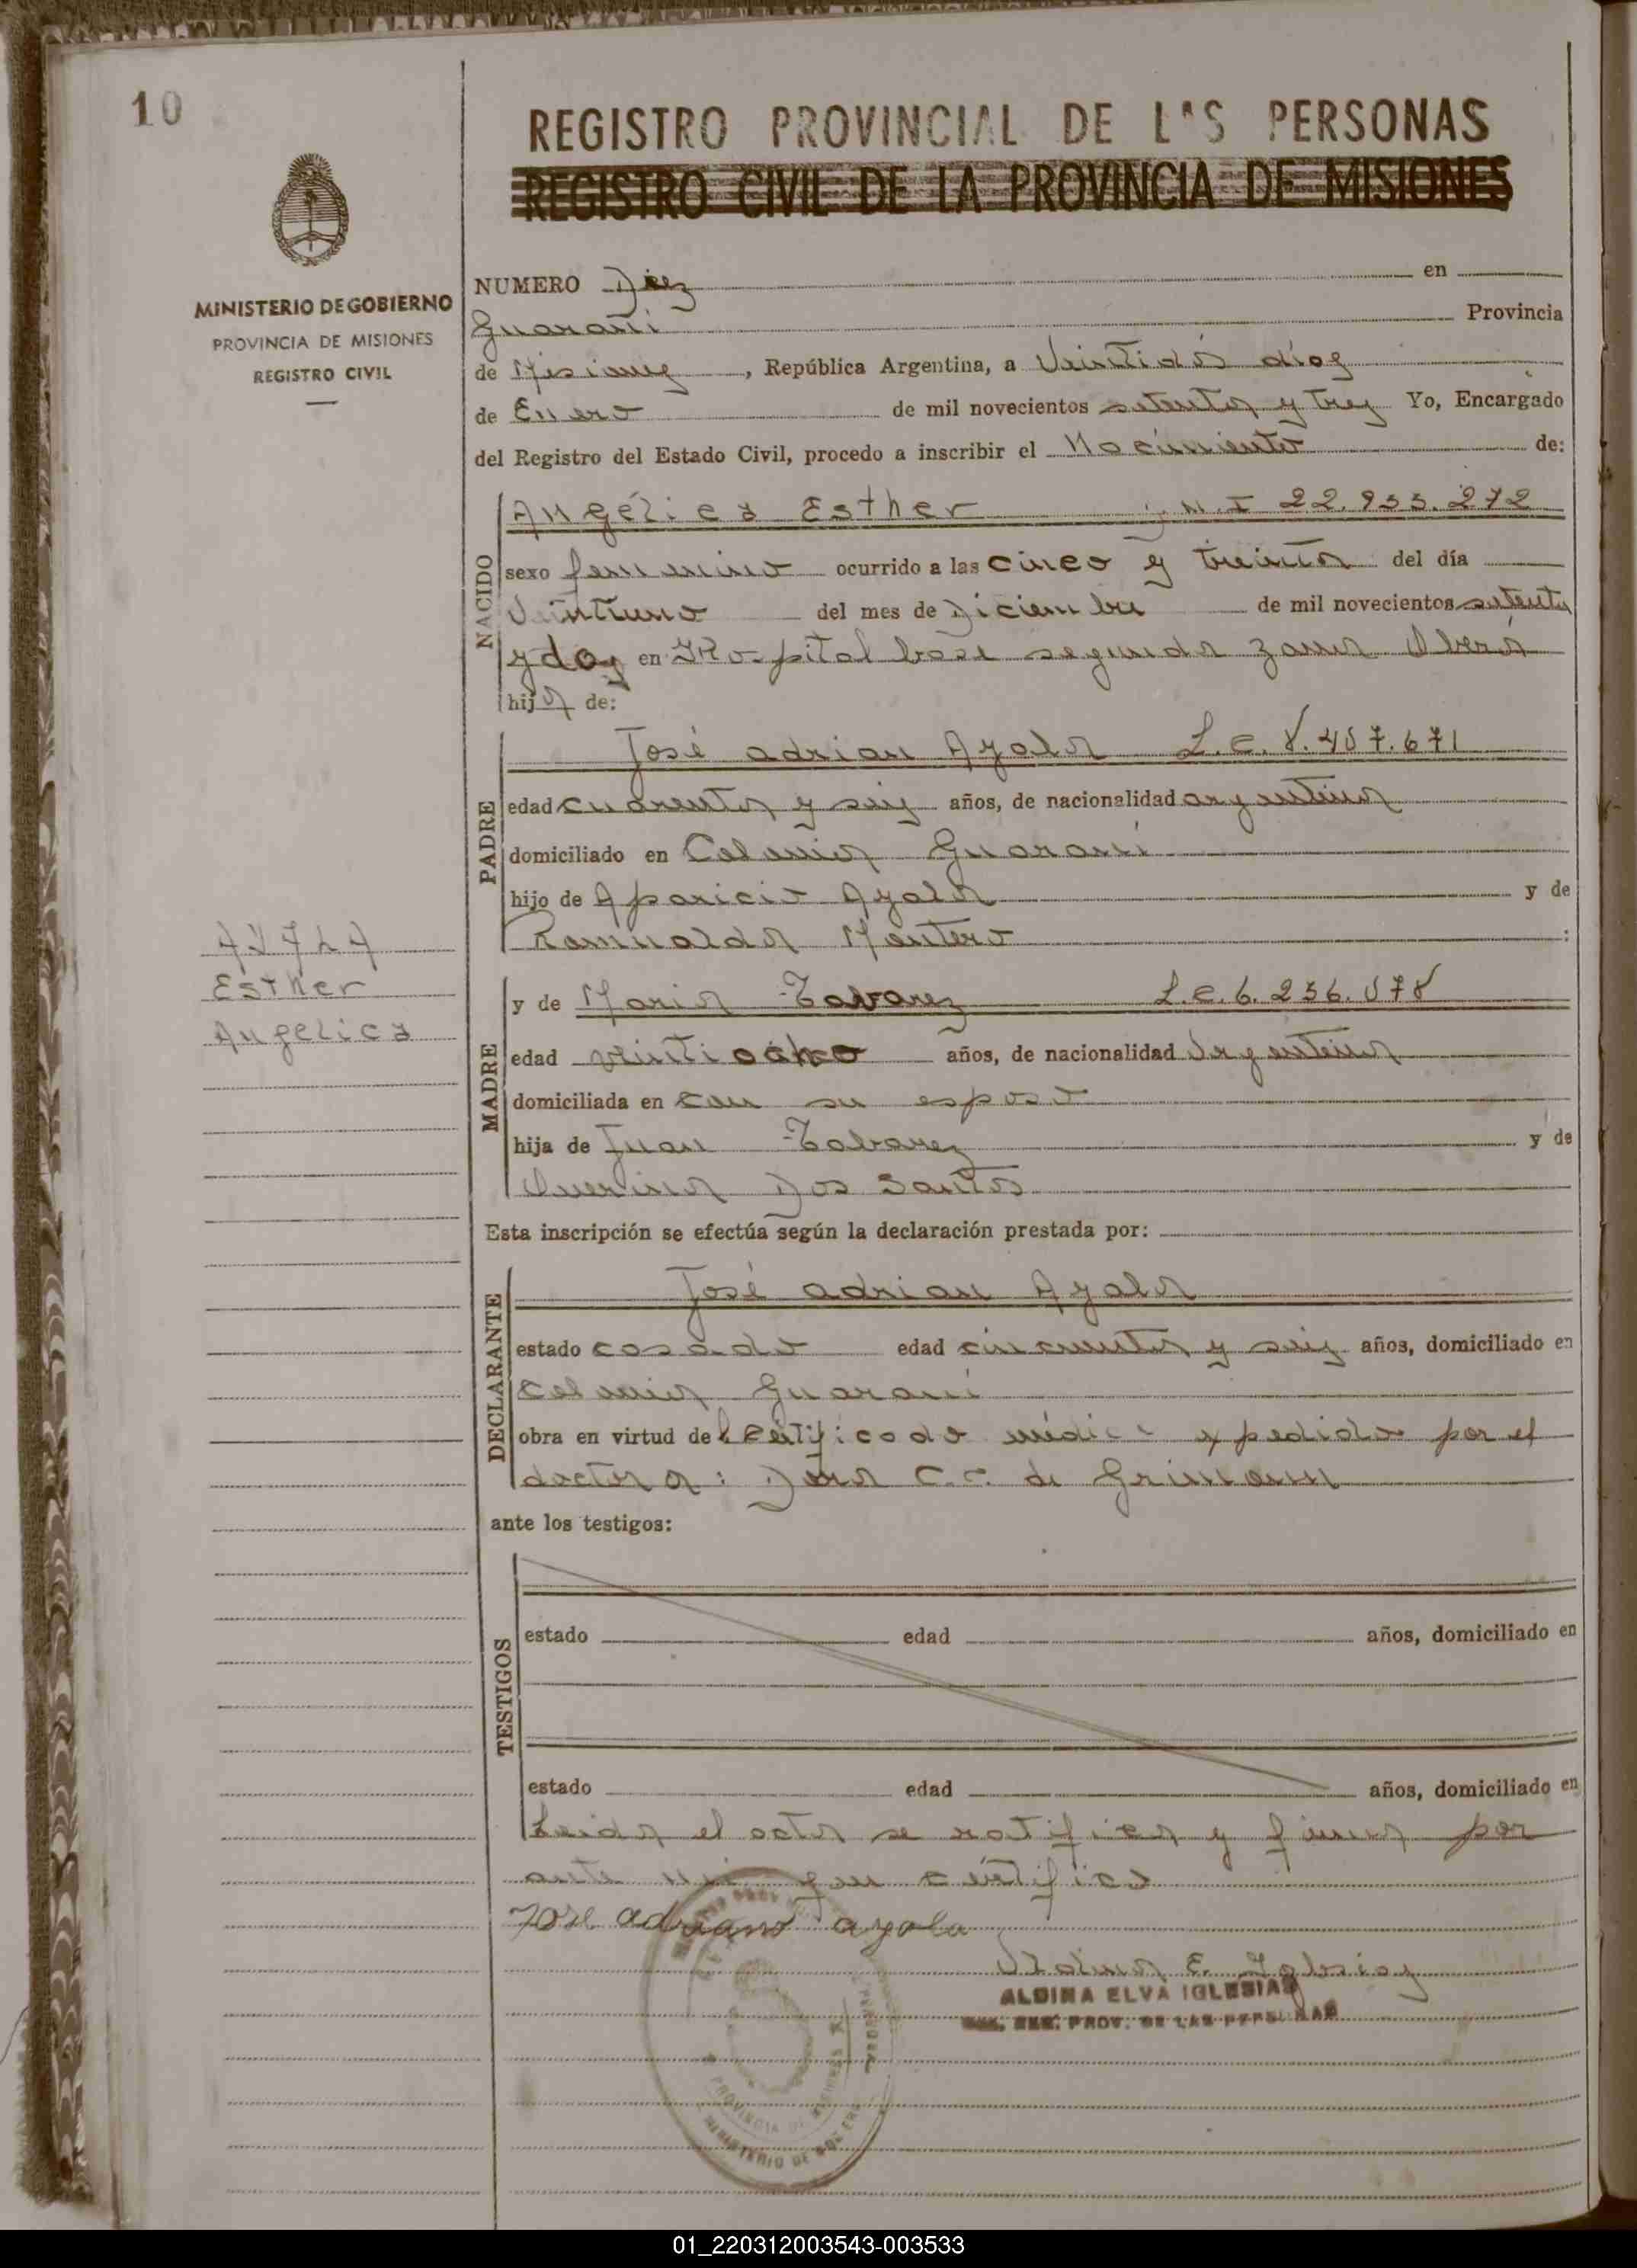 10
REGISTRO PROVINCIAL DE LAS PERSONAS
REGISTRO CIVIL DE LA PROVINCIA DE MISIONES
MINISTERIO DE GOBIERNO
PROVINCIA DE MISIONES
REGISTRO CIVIL
NUMERO Diez en
Guaraní Provincia
de Misiones, República Argentina, a Veintidós días
de Enero de mil novecientos setenta y tres Yo, Encargado
del Registro del Estado Civil, procedo a inscribir el Nacimiento de:
NACIDO
Angélica Esther M.I 22.955.272
sexo femenino ocurrido a las cinco y treinta del día
Veintiuno del mes de Diciembre de mil novecientos setenta
y dos en Hospital base segunda zona Oberá
hija de:
PADRE
José adrian Ayala
edad cuarenta y seis años, de nacionalidad argentina
domiciliado en Colonia Guaraní
hijo de Aparicio Ayala y de
Romualda Montero :
AYALA
Esther
Angelica
MADRE
y de Maria Tabarez L.C. 6.256.078
edad veintiocho años, de nacionalidad Argentina
domiciliada en con su esposo
hija de Juan Tabarez y de
Dos Santos
Esta inscripción se efectúa según la declaración prestada por:
DECLARANTE
José adrian Ayala
estado casado edad cincuenta y seis años, domiciliado en
Colonia Guaraní
obra en virtud del Certificado médico expedido por el
doctora: Dora C.C. de Grimann
ante los testigos:
TESTIGOS
estado edad años, domiciliado en
estado edad años, domiciliado en
Leida el acta se ratifica y firma por
ante mi que certifico
José adriano ayala
Aldina E. Iglesias
ALDINA ELVA IGLESIAS
REG. PROV. DE LAS PERSONAS
PROVINCIA DE MISIONES
MINISTERIO DE GOBIERNO
01_220312003543-003533